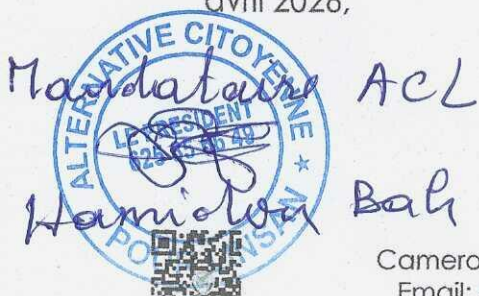 avril 2026,
Mandataire ACL
ALTERNATIVE CITOYENNE
LE PRESIDENT
Hamidou Bah
Camero
Email: